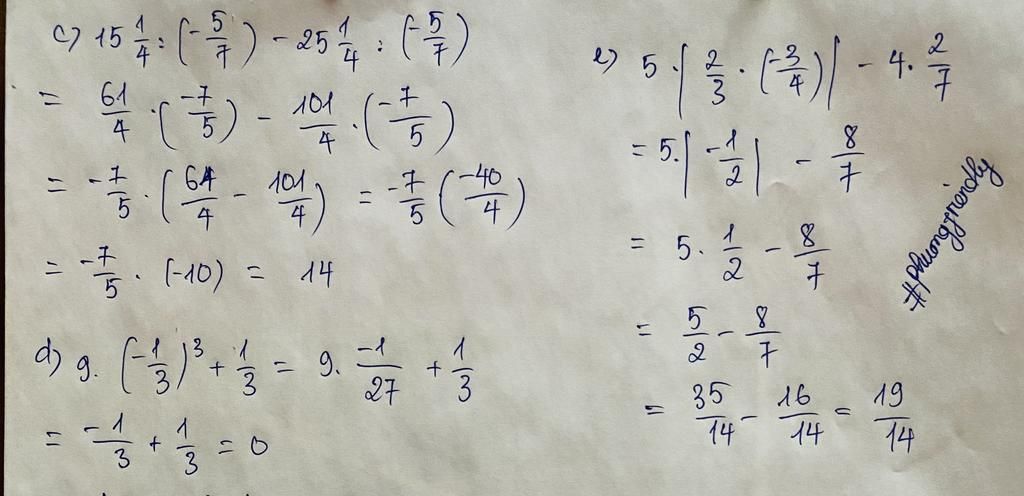 c) 15 1/4 : (-5/7) - 25 1/4 : (-5/7)
= 61/4 · (-7/5) - 101/4 · (-7/5)
= -7/5 · (61/4 - 101/4) = -7/5 (-40/4)
= -7/5 · (-10) = 14
d) 9. (-1/3)³ + 1/3 = 9. -1/27 + 1/3
= -1/3 + 1/3 = 0
e) 5 · | 2/3 · (-3/4) | - 4. 2/7
= 5. | -1/2 | - 8/7
= 5. 1/2 - 8/7
= 5/2 - 8/7
= 35/14 - 16/14 = 19/14
#phuongfriendly